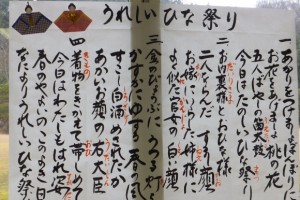 うれしいひな祭り
一 あかりをつけましょぼんぼりに
お花をあげましょ桃の花
五人ばやしの笛太鼓
今日はたのしいひな祭り
二 お内裏様とおひな様
二人ならんですまし顔
お嫁にいらした姉様に
よく似た官女の白い顔
三 金のびょうぶにうつる灯を
かすかにゆする春の風
すこし白酒めされたか
あかいお顔の右大臣
四 着物をきかえて帯しめて
今日はわたしもはれ姿
春のやよいのこのよき日
なによりうれしいひな祭り